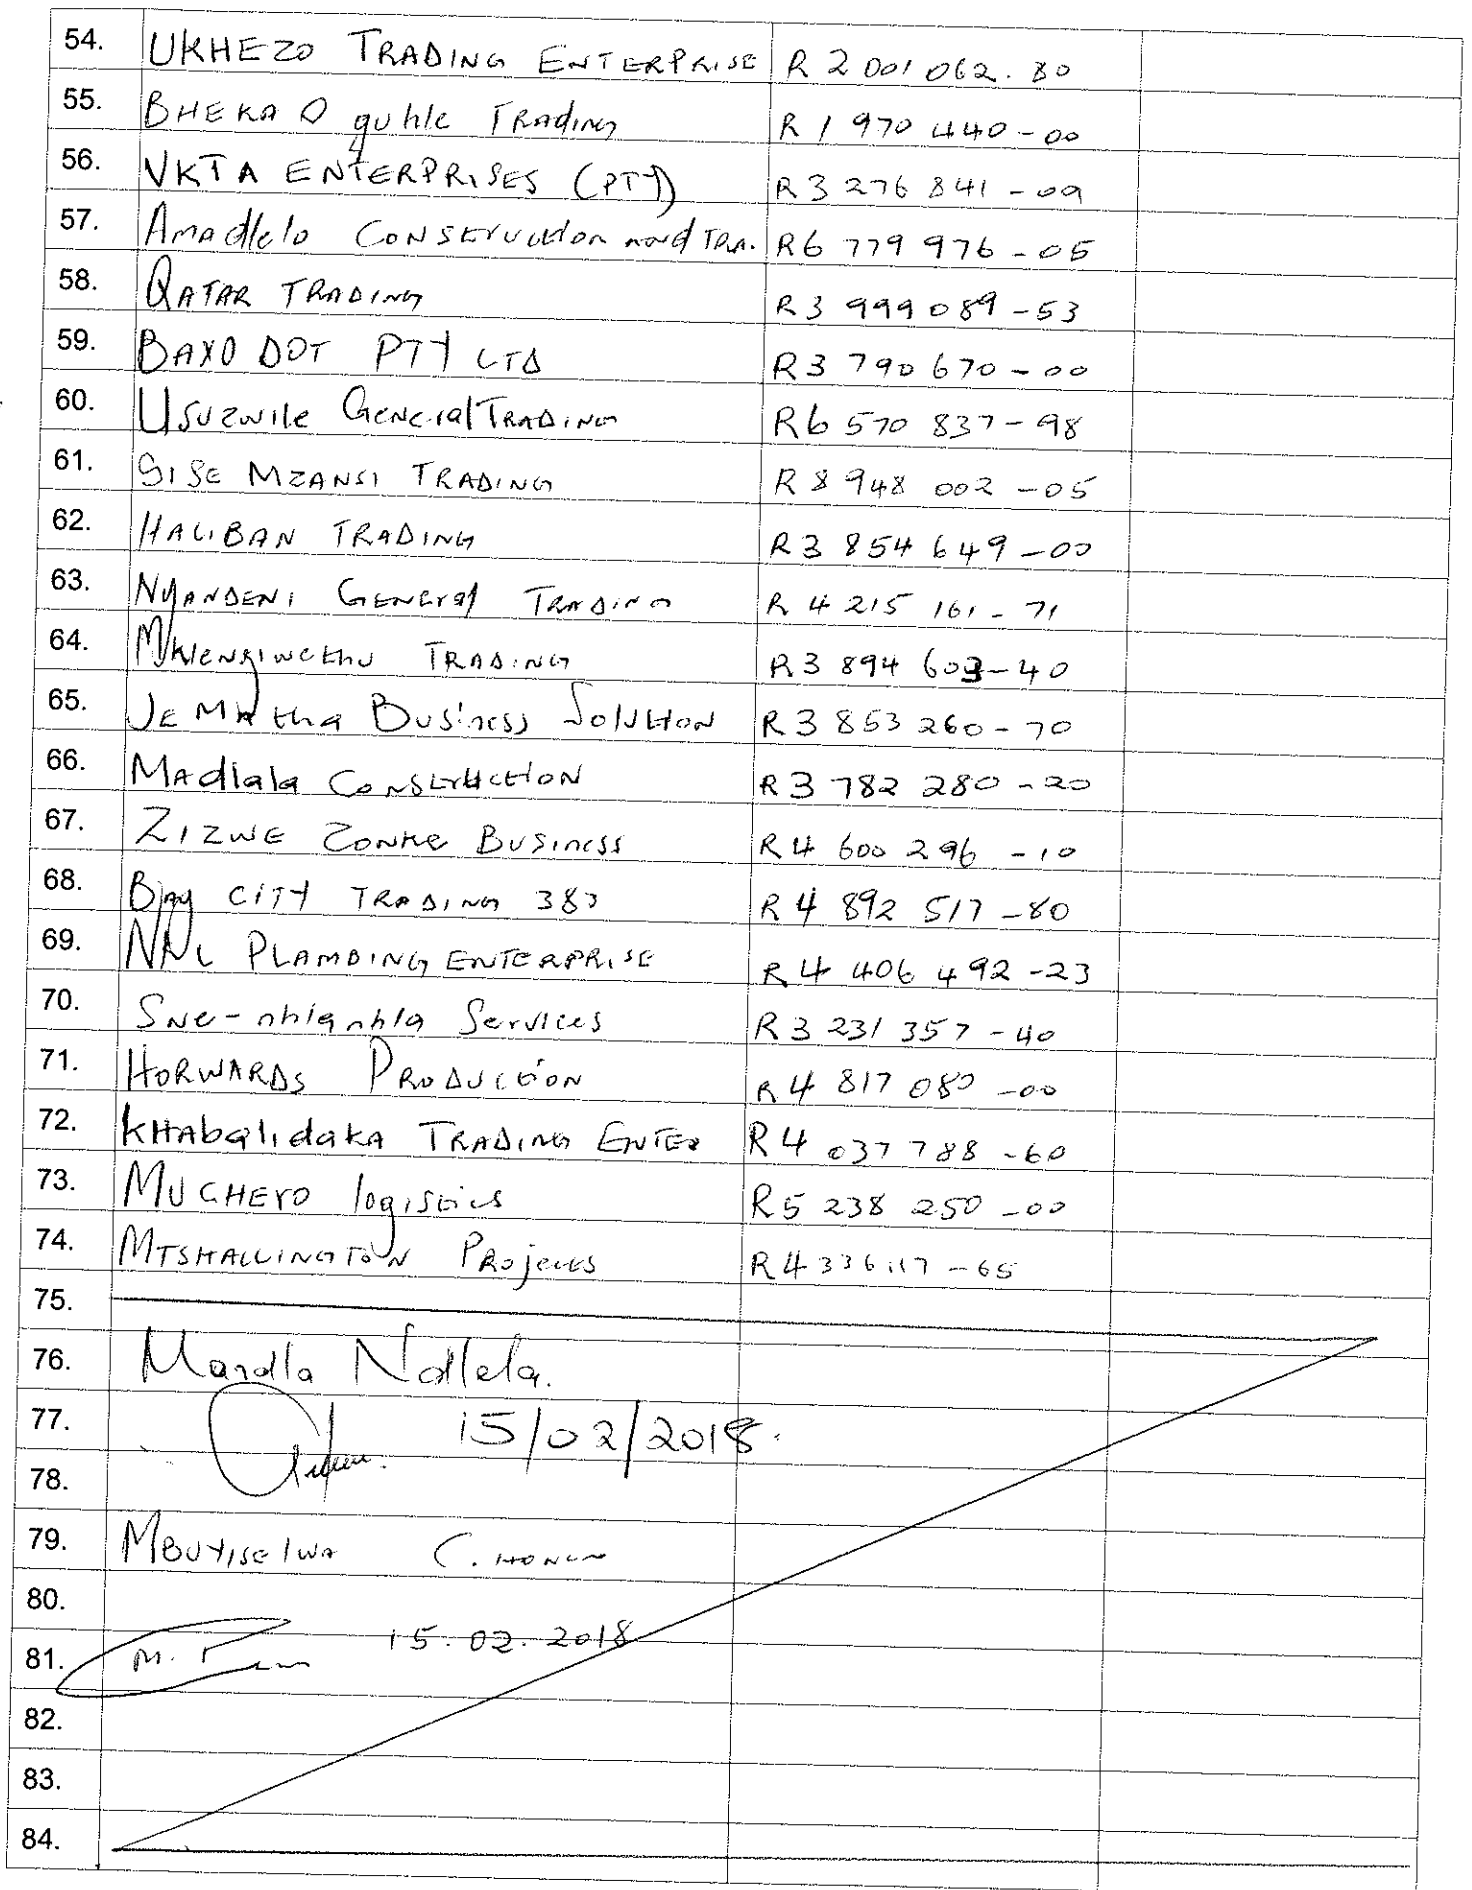 54. UKHEZO TRADING ENTERPRISE R 2 001 062. 80
55. BHEKA O guhle TRading R 1 970 440-00
56. VKTA ENTERPRISES (PTY) R 3 276 841 -09
57. Amadlelo CONStruction and TRA. R6 779 976 -05
58. QATAR TRADING R3 999 089 -53
59. BAXO DOT PTY LTD R3 790 670-00
60. Usuzwile General TRADING R6 570 837-98
61. SISE MZANSI TRADING R 8 948 002 -05
62. HALIBAN TRADING R3 854 649-00
63. NYANDENI GENEral TRADING R 4 215 161- 71
64. TRADING R3 894 603-40
65. Business Solution R3 853 260-70
66. Madlala ConStruction R3 782 280 -20
67. ZIZWE ZONKe BUSiness R4 600 296 -10
68. Bay CITY TRADING 383 R 4 892 517 -80
69. PLAMBING ENTERPRISE R4 406 492 -23
70. SNe-nhlanhla Services R3 231 357 -40
71. HORWARDS PRODUCtion R4 817 080 -00
72. KHAbalidaka TRADING ENTER R4 037 788 -60
73. MUCHEYO logistics R5 238 250 -00
74. MTSHALLINGTON PRojects R4 336 117 -65
75.
76. Mandla Ndlela.
77. 15/02/2018.
78.
79. MBUYISelwA C.
80.
81. M. 15.02.2018
82.
83.
84.